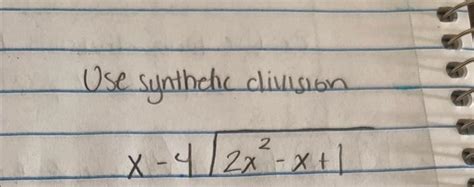 Use synthetic division
x - 4 ⟌ 2x² - x + 1